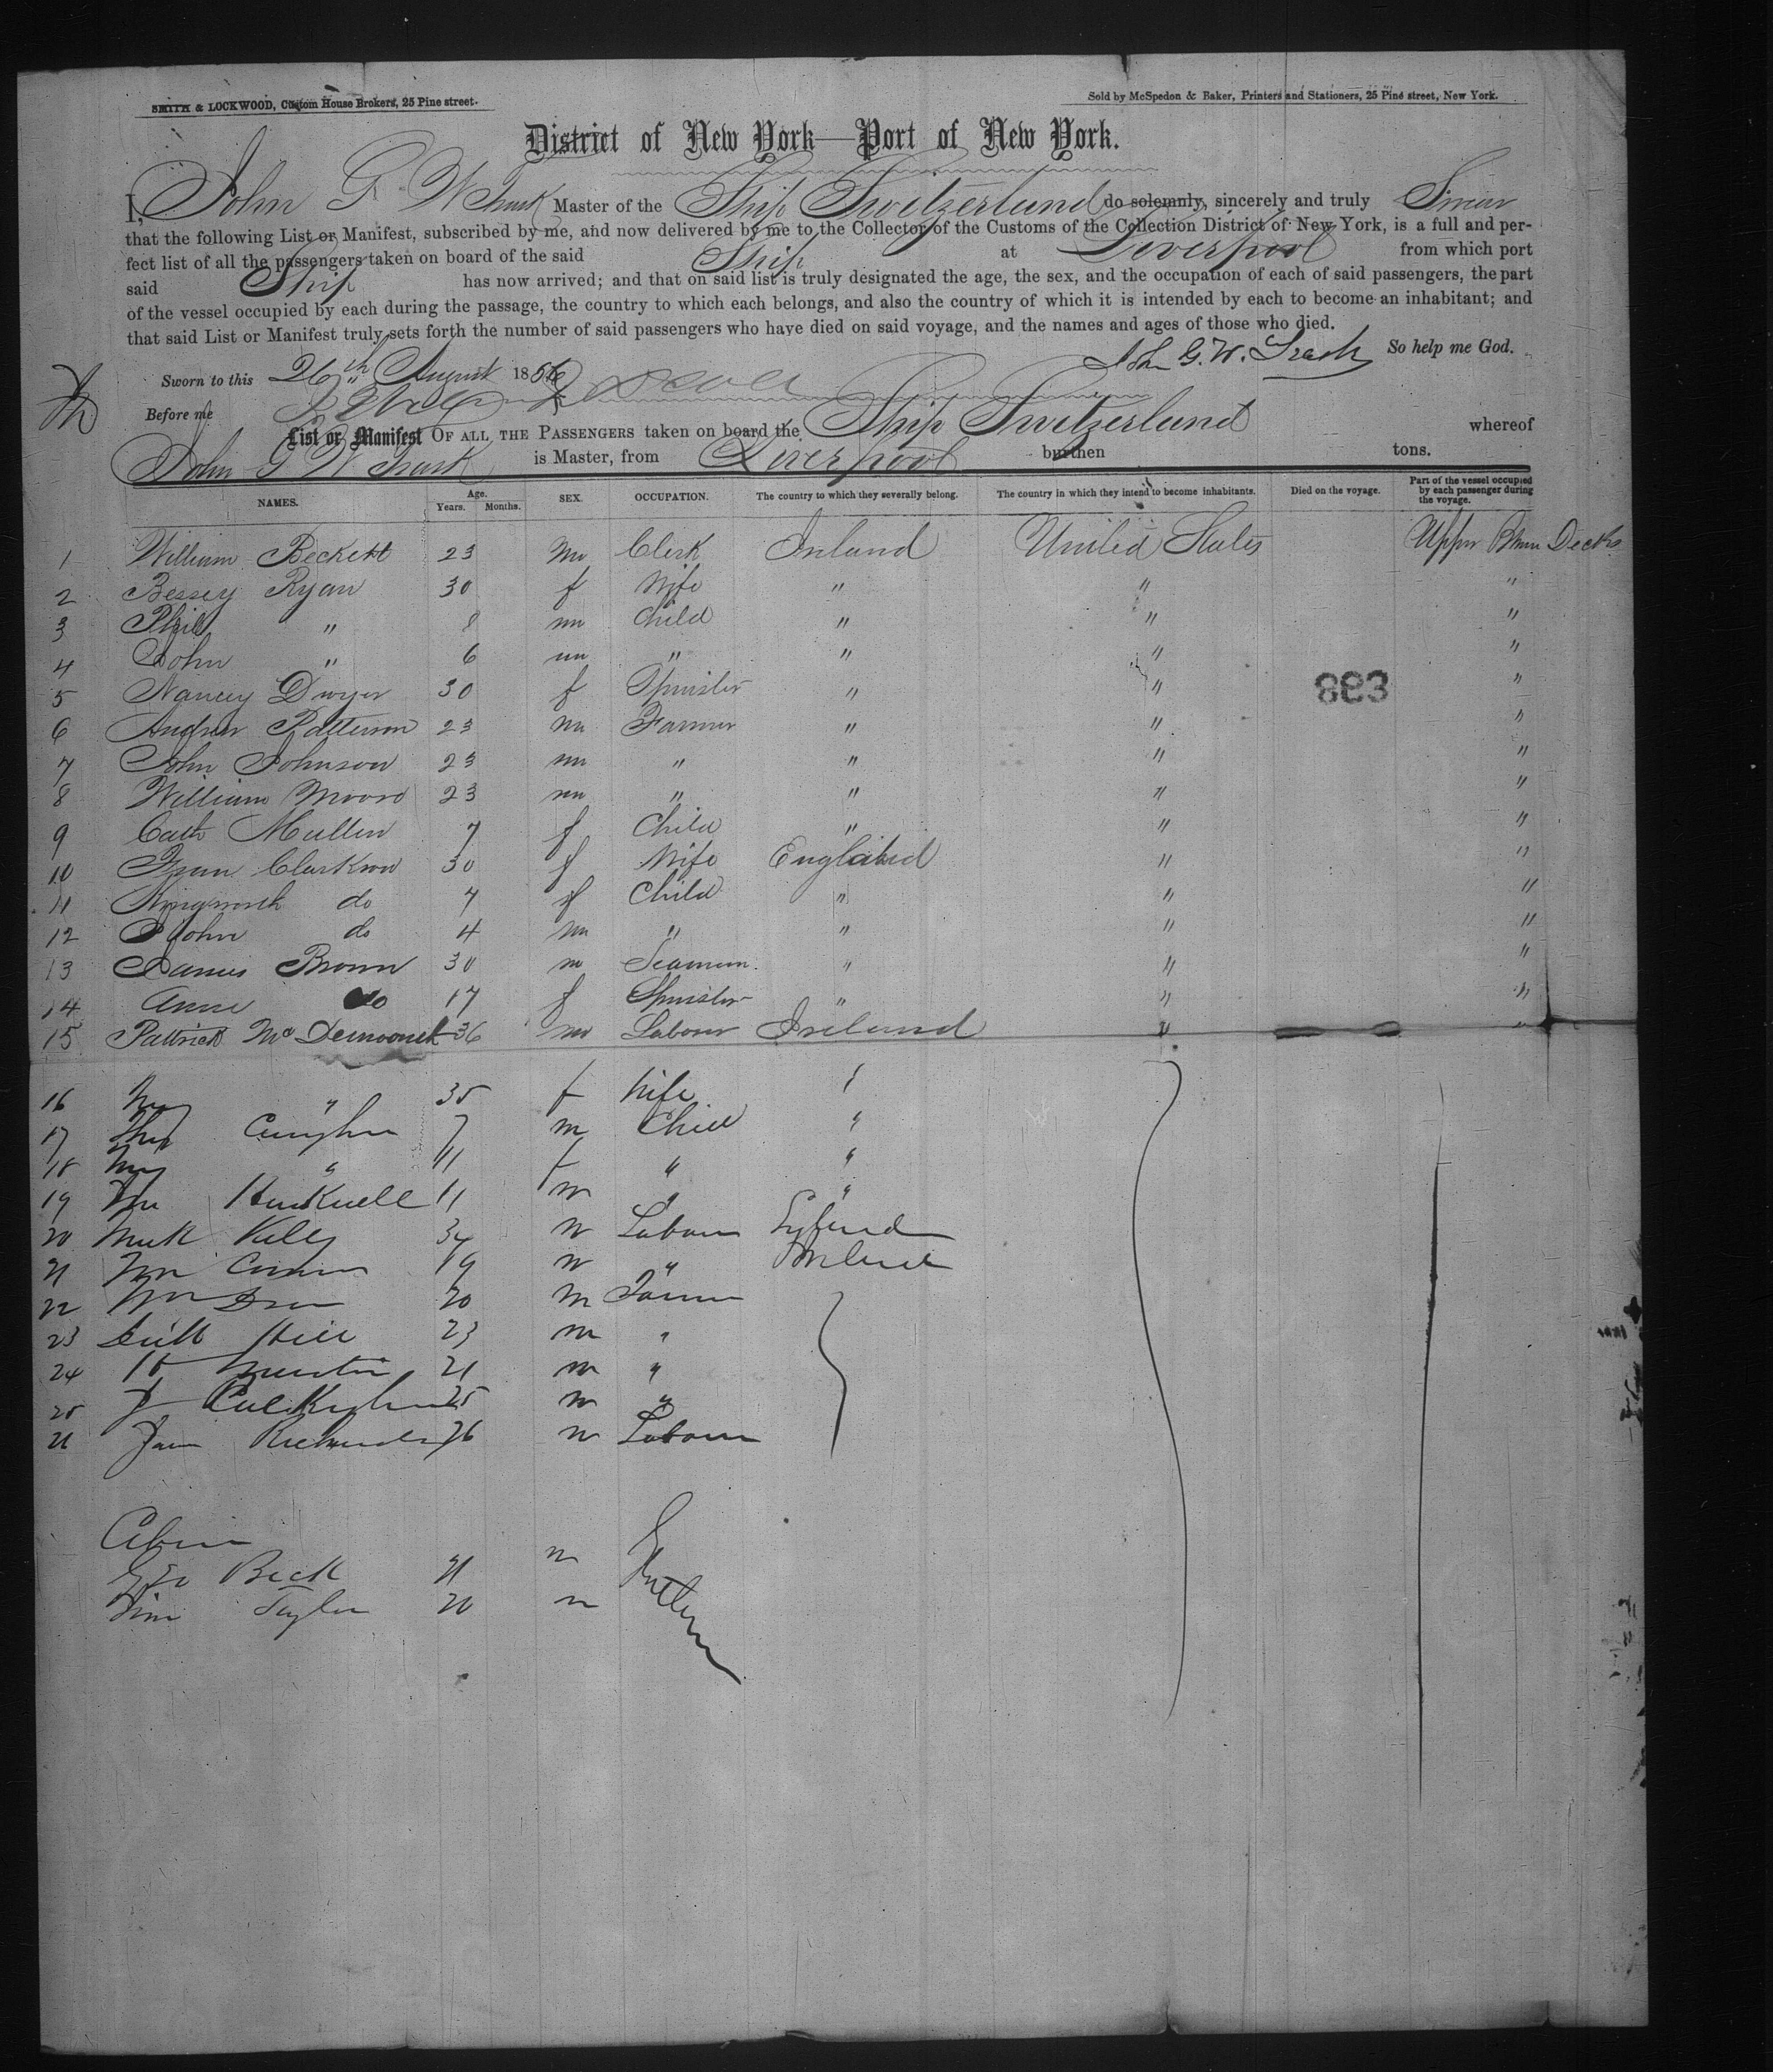 SMITH & LOCKWOOD, Custom House Brokers, 25 Pine street.
Sold by McSpedon & Baker, Printers and Stationers, 25 Pine street, New York.
District of New York—Port of New York.
I, John G. W. Trask Master of the Ship Switzerland do solemnly, sincerely and truly Swear
that the following List or Manifest, subscribed by me, and now delivered by me to the Collector of the Customs of the Collection District of New York, is a full and per-
fect list of all the passengers taken on board of the said Ship at Liverpool from which port
said Ship has now arrived; and that on said list is truly designated the age, the sex, and the occupation of each of said passengers, the part
of the vessel occupied by each during the passage, the country to which each belongs, and also the country of which it is intended by each to become an inhabitant; and
that said List or Manifest truly sets forth the number of said passengers who have died on said voyage, and the names and ages of those who died.
John G. W. Trask So help me God.
Sworn to this 26th August 1856
Before me
List or Manifest OF ALL THE PASSENGERS taken on board the Ship Switzerland whereof
John G W Trask is Master, from Liverpool burthen tons.
NAMES. Age. Years. Months. SEX. OCCUPATION. The country to which they severally belong. The country in which they intend to become inhabitants. Died on the voyage. Part of the vessel occupied by each passenger during the voyage.
1 William Beckett 23 m Clerk Ireland United States Upper Decks
2 Bessey Ryan 30 f Wife " " "
3 Phil " 8 m Child " " "
4 John " 6 m " " " "
5 Nancy Dwyer 30 f Spinster " " 883 "
6 Andrew Patterson 23 m Farmer " " "
7 John Johnson 23 m " " " "
8 William Moore 23 m " " " "
9 Cath Mullen 7 f Child " " "
10 Clarkson 30 f Wife England " "
11 do 7 f Child " " "
12 John do 4 m " " " "
13 James Brown 30 m Seaman. " " "
14 Anne do 17 f Spinster " " "
15 Patrick 36 m Labour Ireland " "
16 " 35 f Wife "
17 7 m Child "
18 " 11 f " "
19 Wm 11 m " "
20 Kelly 34 m Labour England
21 Wm 19 m " Ireland
22 Wm 20 m Farmer
23 Hill 23 m "
24 Martin 21 m "
25 25 m "
26 26 m Labour
Cabin
Geo Beck 21 m
Taylor 20 m